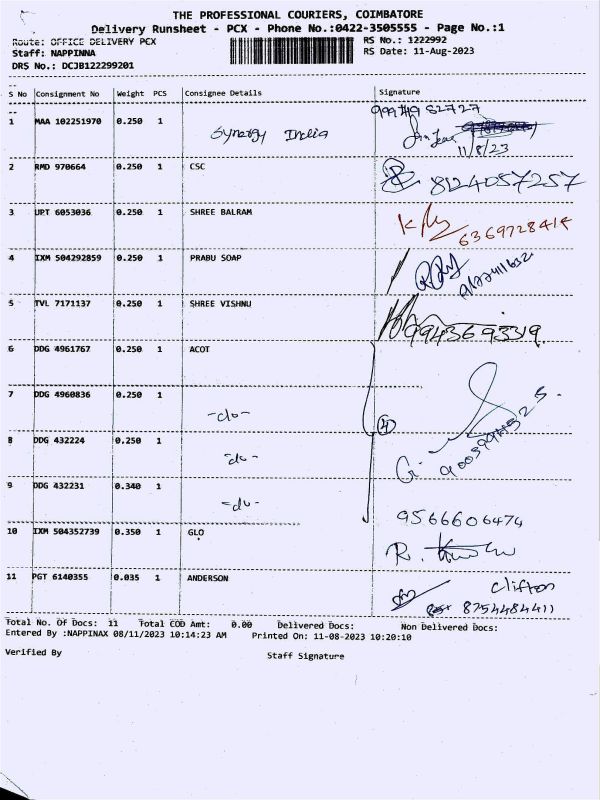 THE PROFESSIONAL COURIERS, COIMBATORE
Delivery Runsheet - PCX - Phone No.:0422-3505555 - Page No.:1
Route: OFFICE DELIVERY PCX RS No.: 1222992
Staff: NAPPINNA RS Date: 11-Aug-2023
DRS No.: DCJB122299201
S No Consignment No Weight PCS Consignee Details Signature
1 MAA 102251970 0.250 1 Synergy India
11/8/23
2 RMD 970664 0.250 1 CSC 8124057257
3 UPT 6053036 0.250 1 SHREE BALRAM 6369728414
4 IXM 504292859 0.250 1 PRABU SOAP
5 TVL 7171137 0.250 1 SHREE VISHNU 9943693319
6 DDG 4961767 0.250 1 ACOT
7 DDG 4960836 0.250 1 -do-
4
8 DDG 432224 0.250 1 -do-
G.
9 DDG 432231 0.340 1 -do-
9566606474
10 IXM 504352739 0.350 1 GLO
R.
11 PGT 6140355 0.035 1 ANDERSON Clifton
8754484411
Total No. Of Docs: 11 Total COD Amt: 0.00 Delivered Docs: Non Delivered Docs:
Entered By :NAPPINAX 08/11/2023 10:14:23 AM Printed On: 11-08-2023 10:20:10
Verified By Staff Signature